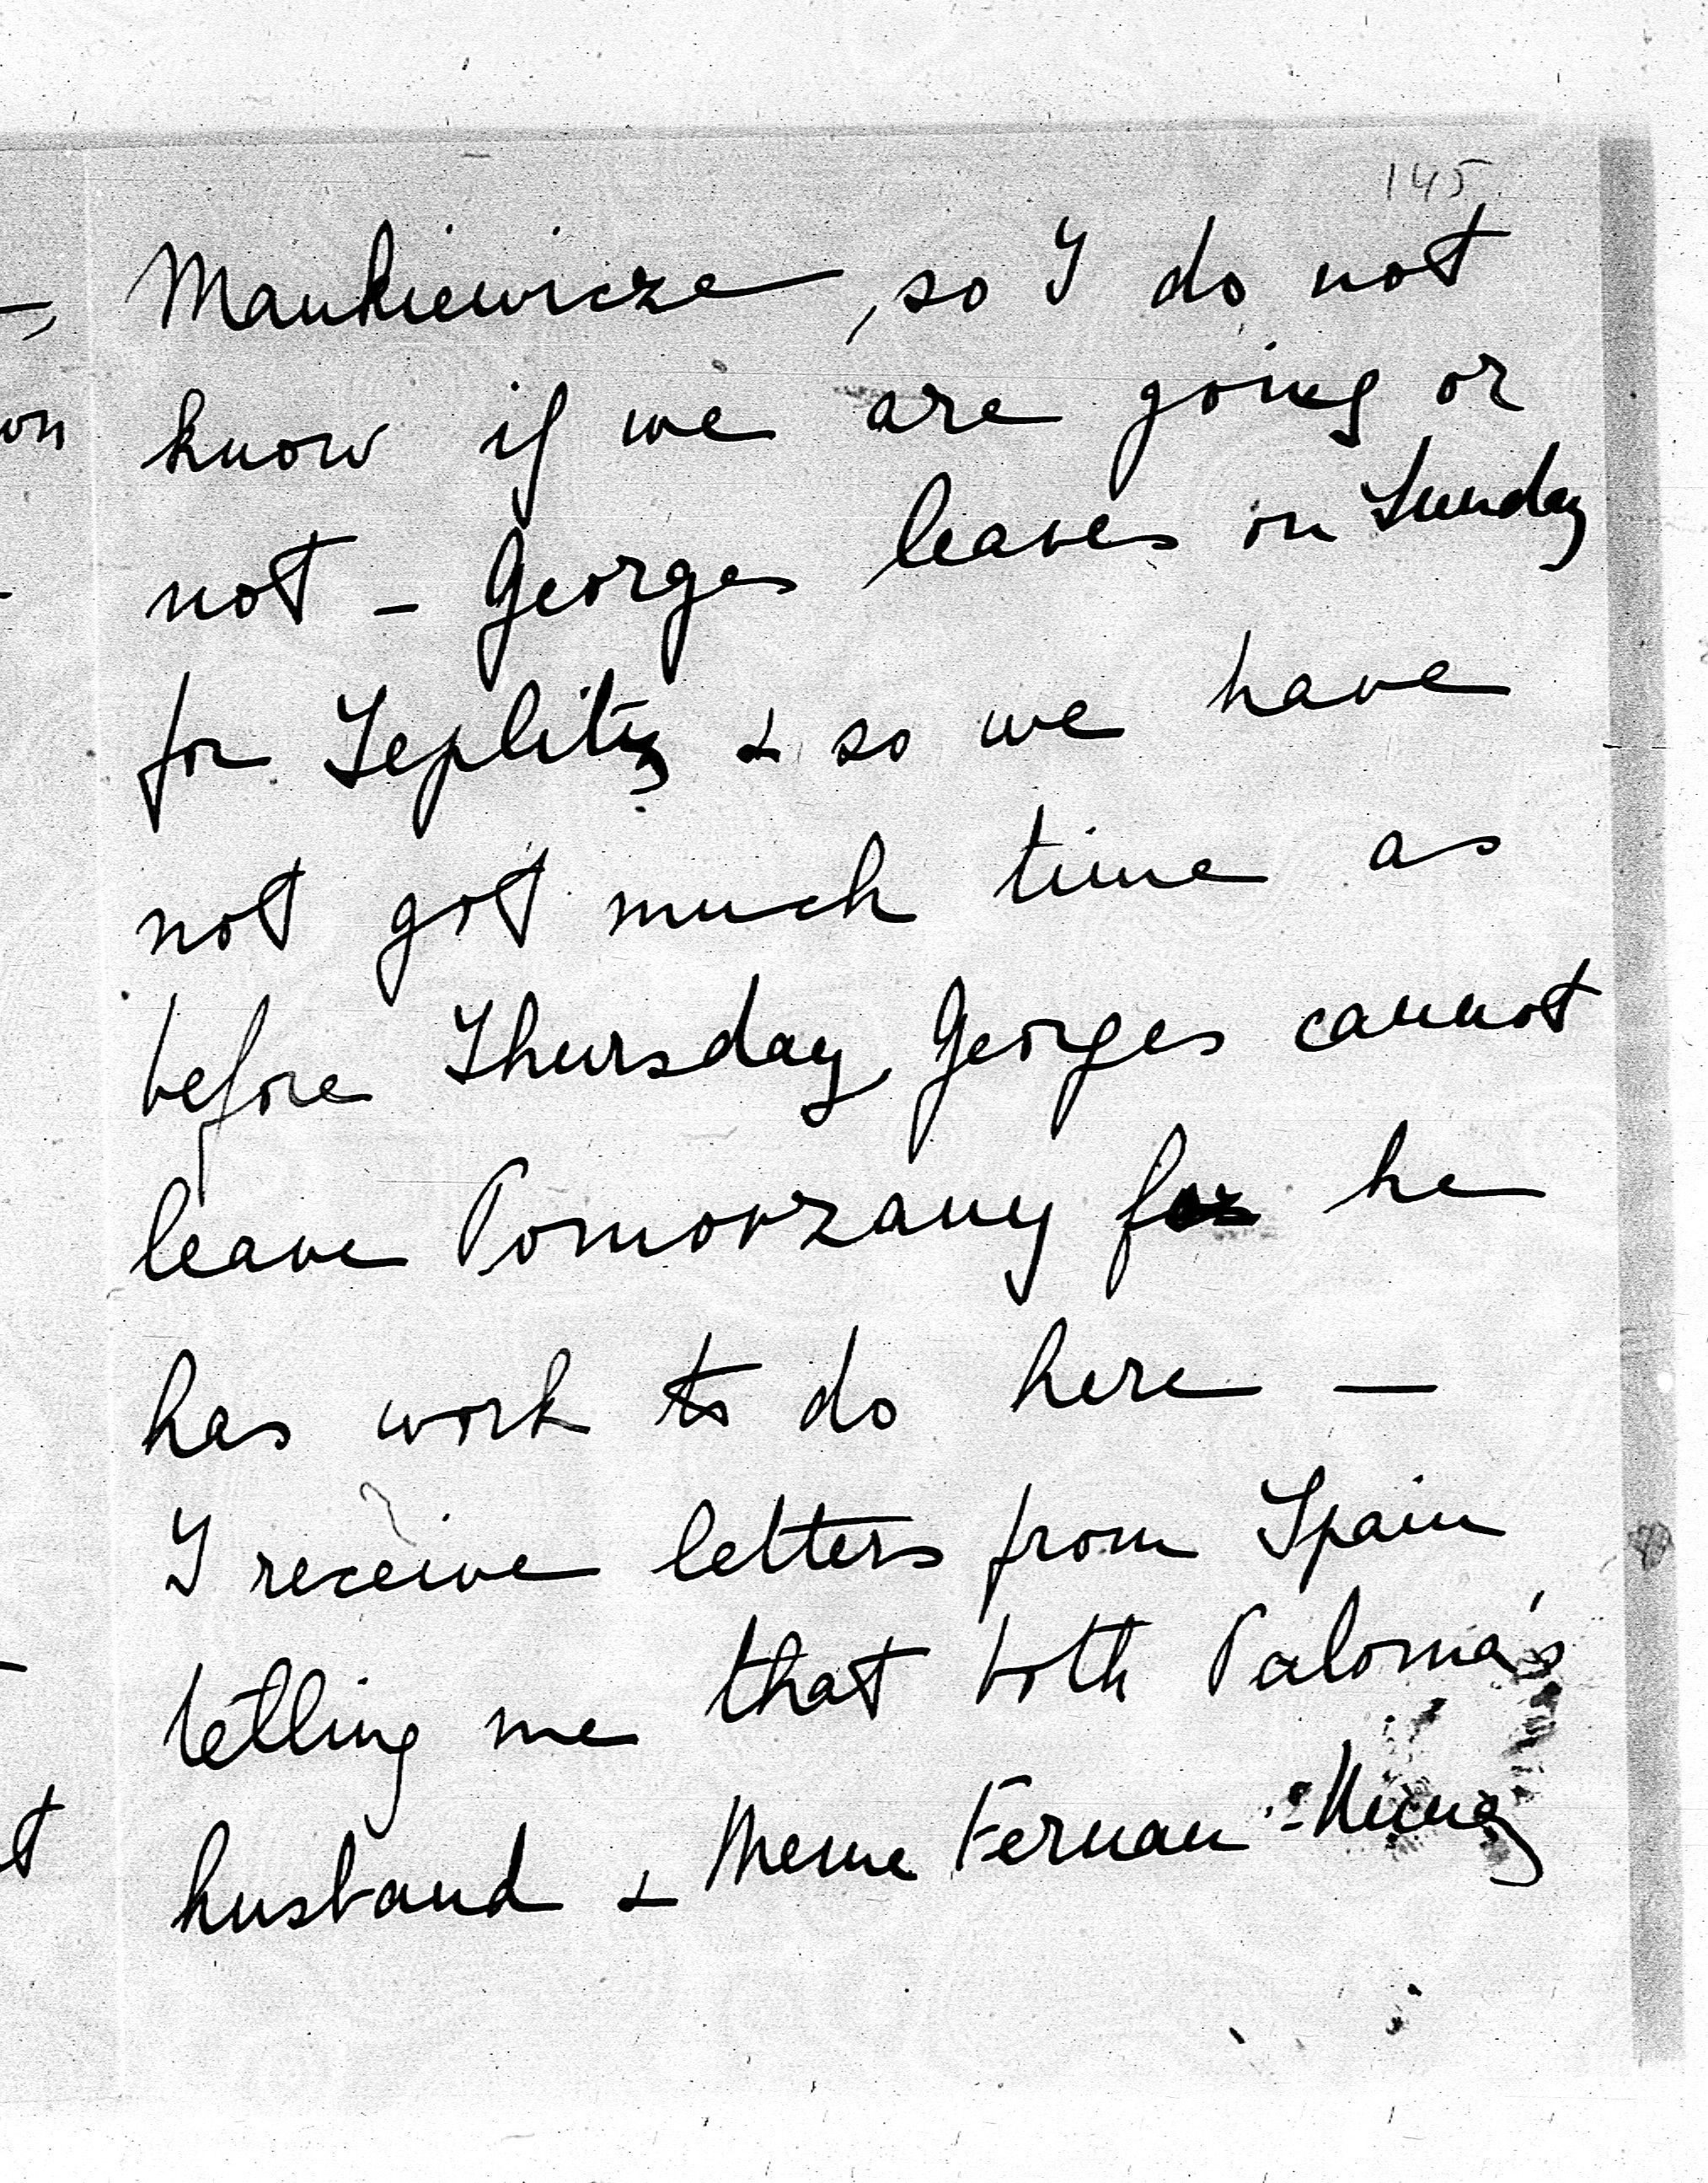 145
Mankiewicze, so I do not
know if we are going or
not – Georges leaves on Sunday
for Teplitz & so we have
not got much time as
before Thursday Georges cannot
leave Pomorzany for he
has work to do here —
I receive letters from Spain
telling me that both Paloma's
husband & Meme Fernan-Nunez
on
t